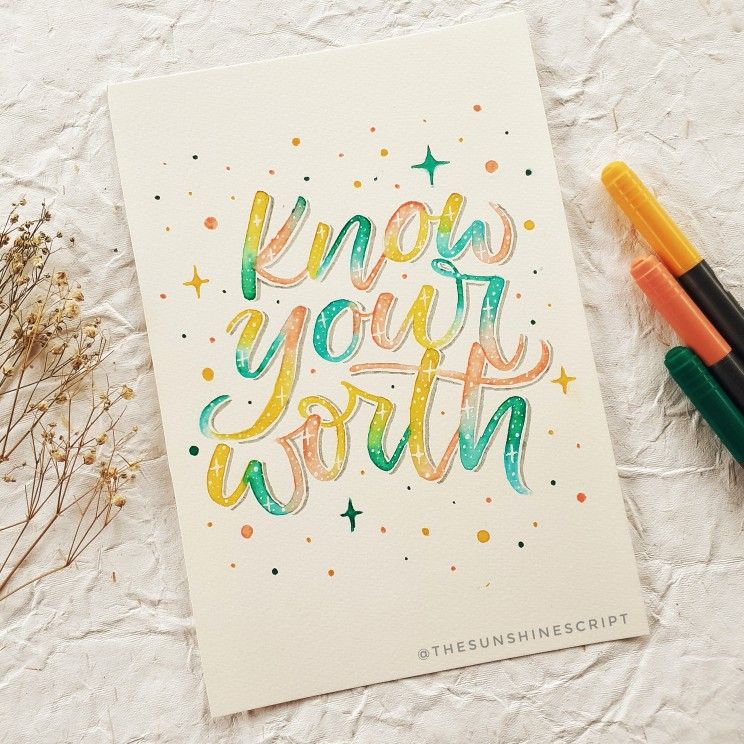 know
your
worth
@THESUNSHINESCRIPT